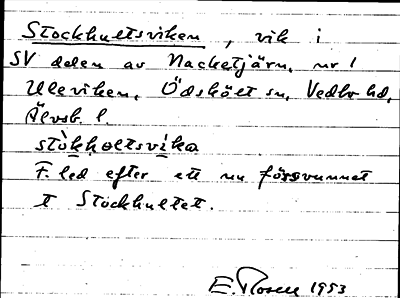 Stockhultsviken, vik i
SV delen av Nacketjärn, nr 1
Uleviken, Ödskölt sn, Vedbo hd,
Älvsb. l.
stòkholtsvika
F. led efter ett nu försvunnet
t Stockhultet.
E. Rosell 1953